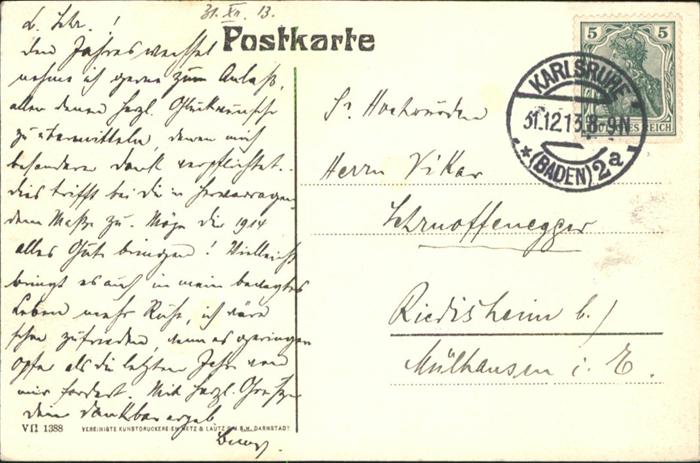 31. XII. 13.
L. Lehr.!
Dem Jahreswechsel
nehme ich gerne zum Anlaß,
allen denen herzl. Glückwünsche
zu übermitteln, denen mich
besondere Dank verpflichtet.
Dies trifft bei dir in hervorragen-
dem Maße zu. Möge dir 1914
alles Gute bringen! Vielleicht
bringt es auch in mein bewegtes
Leben mehr Ruhe, ich wäre
schon zufrieden, wenn es geringere
Opfer als die letzten Jahre von
mir fordert. Mit herzl. Grüßen
Dein dankbar ergeb.
VII 1388
VEREINIGTE KUNSTDRUCKEREIEN METZ & LAUTZ G.M.B.H. DARMSTADT
Postkarte
5 5
DEUTSCHES REICH
KARLSRUHE
31.12.13.8-9N
*(BADEN)2a
Sr Hochwürden
Herrn Vikar
Riedisheim b/
Mülhausen i. E.